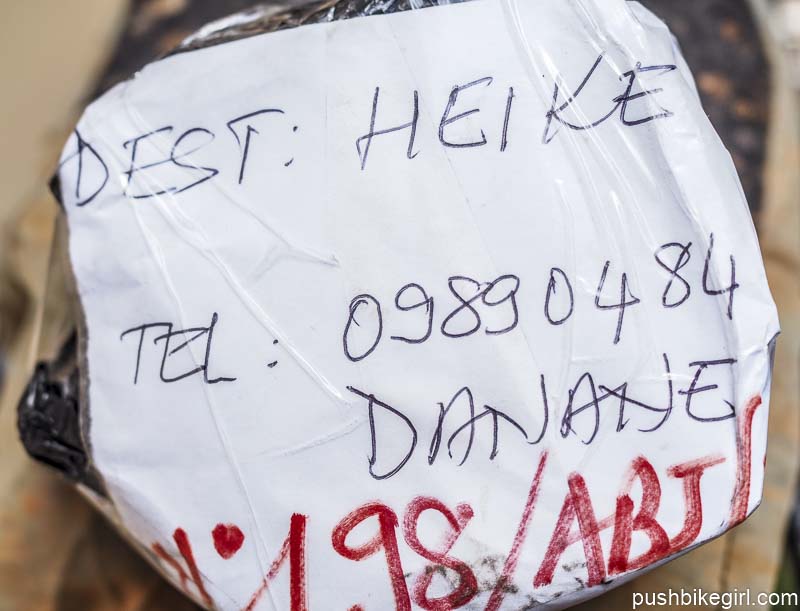 DEST: HEIKE
TEL: 09890484
DANANE
N° 198/ABJ
pushbikegirl.com